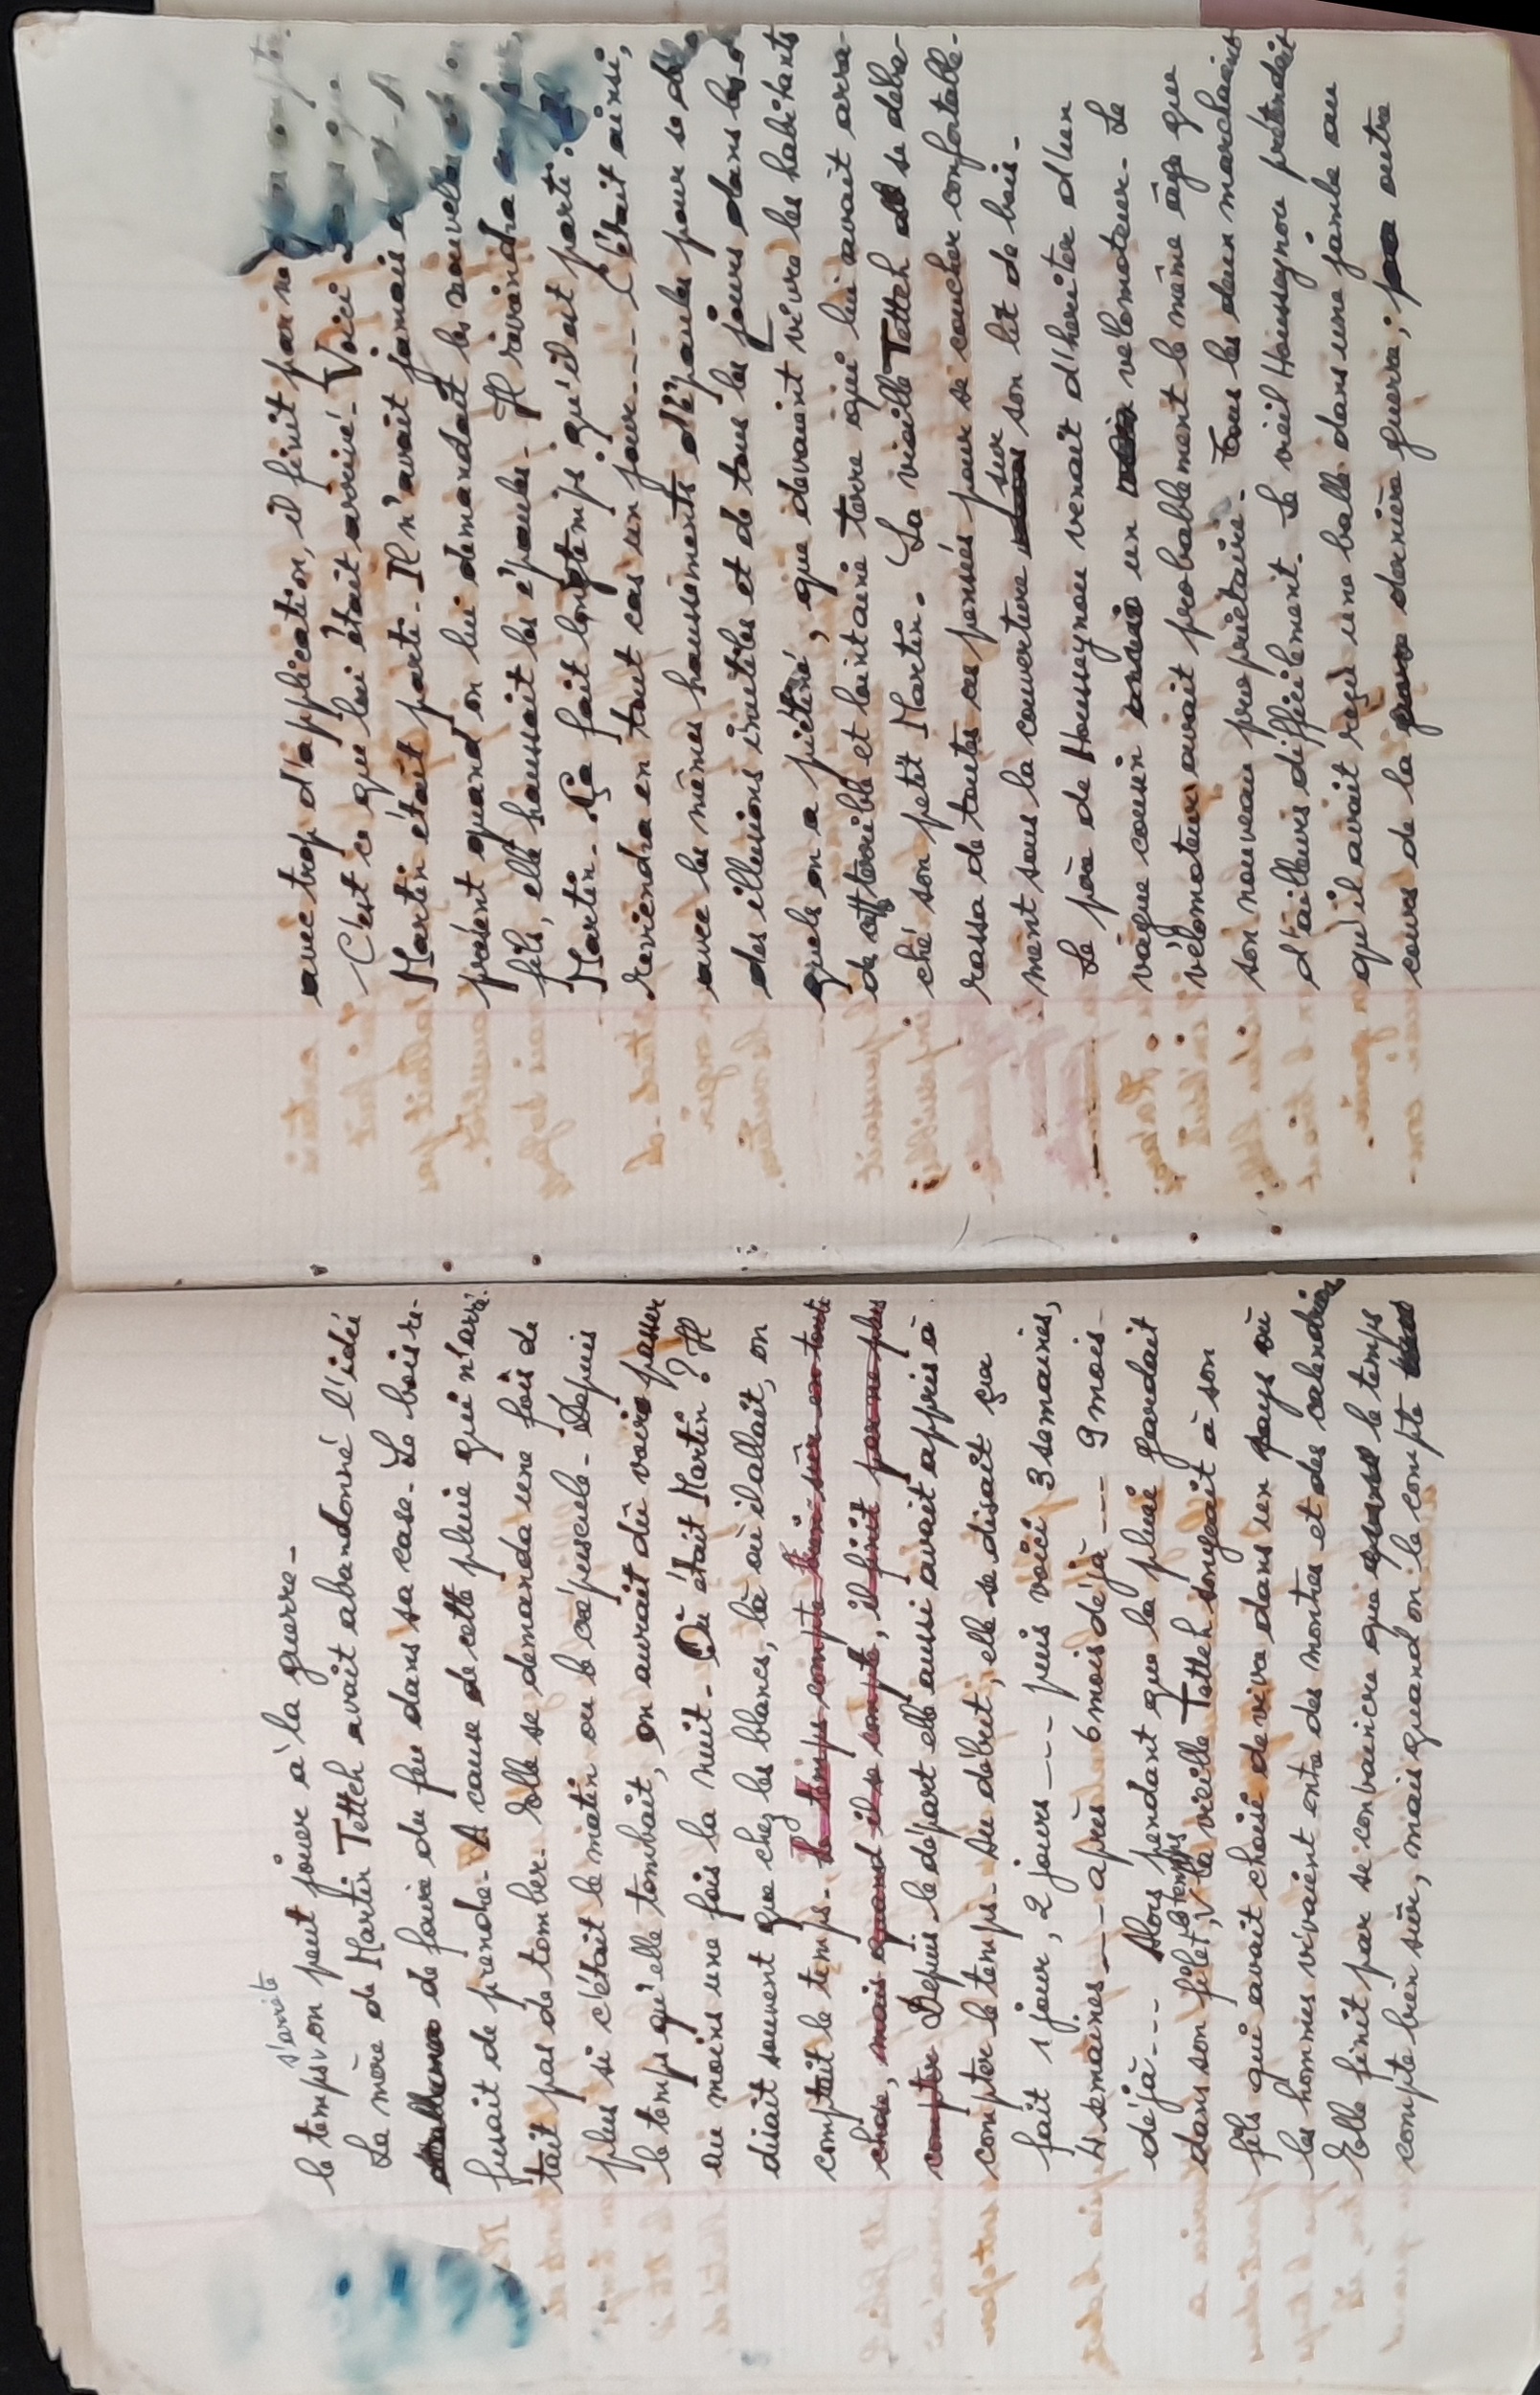 le temps s'arrête on peut jouer à la guerre-
La mère de Martin Tetteh avait abandonné l'idée
de faire du feu dans sa case. Le bois re-
fusait de prendre. A cause de cette pluie qui n'arrê-
tait pas de tomber. Elle se demanda une fois de
plus si c'était le matin ou le crépuscule. Depuis
le temps qu'elle tombait, on aurait dû voir passer
au moins une fois la nuit. Où était Martin ? Il
disait souvent que chez les blancs, là où il allait, on
comptait le temps. le temps compte bien sûr en toute
chose, mais quand il se compte, il finit par ne plus
compter Depuis le départ elle aussi avait appris à
compter le temps. Au début, elle se disait ça
fait 1 jour, 2 jours --- puis voici 3 semaines,
4 semaines --- après 6 mois déjà --- 9 mois
déjà --- Alors pendant que la pluie gardait
dans son filet le temps, la vieille Tetteh songeait à son
fils qui avait choisi de vivre dans un pays où
les hommes vivaient entre des montres et des calendriers
Elle finit par se convaincre que le temps
compte bien sûr, mais quand on le compte
avec trop d'application, il finit par ne
C'est ce qui lui était arrivé. Voici
Martin était parti. Il n'avait jamais
présent quand on lui demandait les nouvelles
fils, elle haussait les épaules. Il reviendra
Martin. Ça fait longtemps qu'il est parti.
reviendra en tout cas un jour --- C'était ainsi,
avec les mêmes haussements d'épaules pour se
des illusions inutiles et de tous les jours dans les-
quels on a piétiné, que devaient vivre les habitants
de cette terrible et lointaine terre qui lui avait arra-
ché son petit Martin. La vieille Tetteh se débar-
rassa de toutes ces pensées pour se coucher confortable-
ment sous la couverture sur son lit de bois.
Le père de Housseynou venait d'hériter d'un
vague cousin un velomoteur. Le
vélomoteur avait probablement le même âge que
son nouveau propriétaire. Tous les deux marchaient
d'ailleurs difficilement. Le vieil Housseynou prétendait
qu'il avait reçu une balle dans une jambe au
cours de la dernière guerre; outre